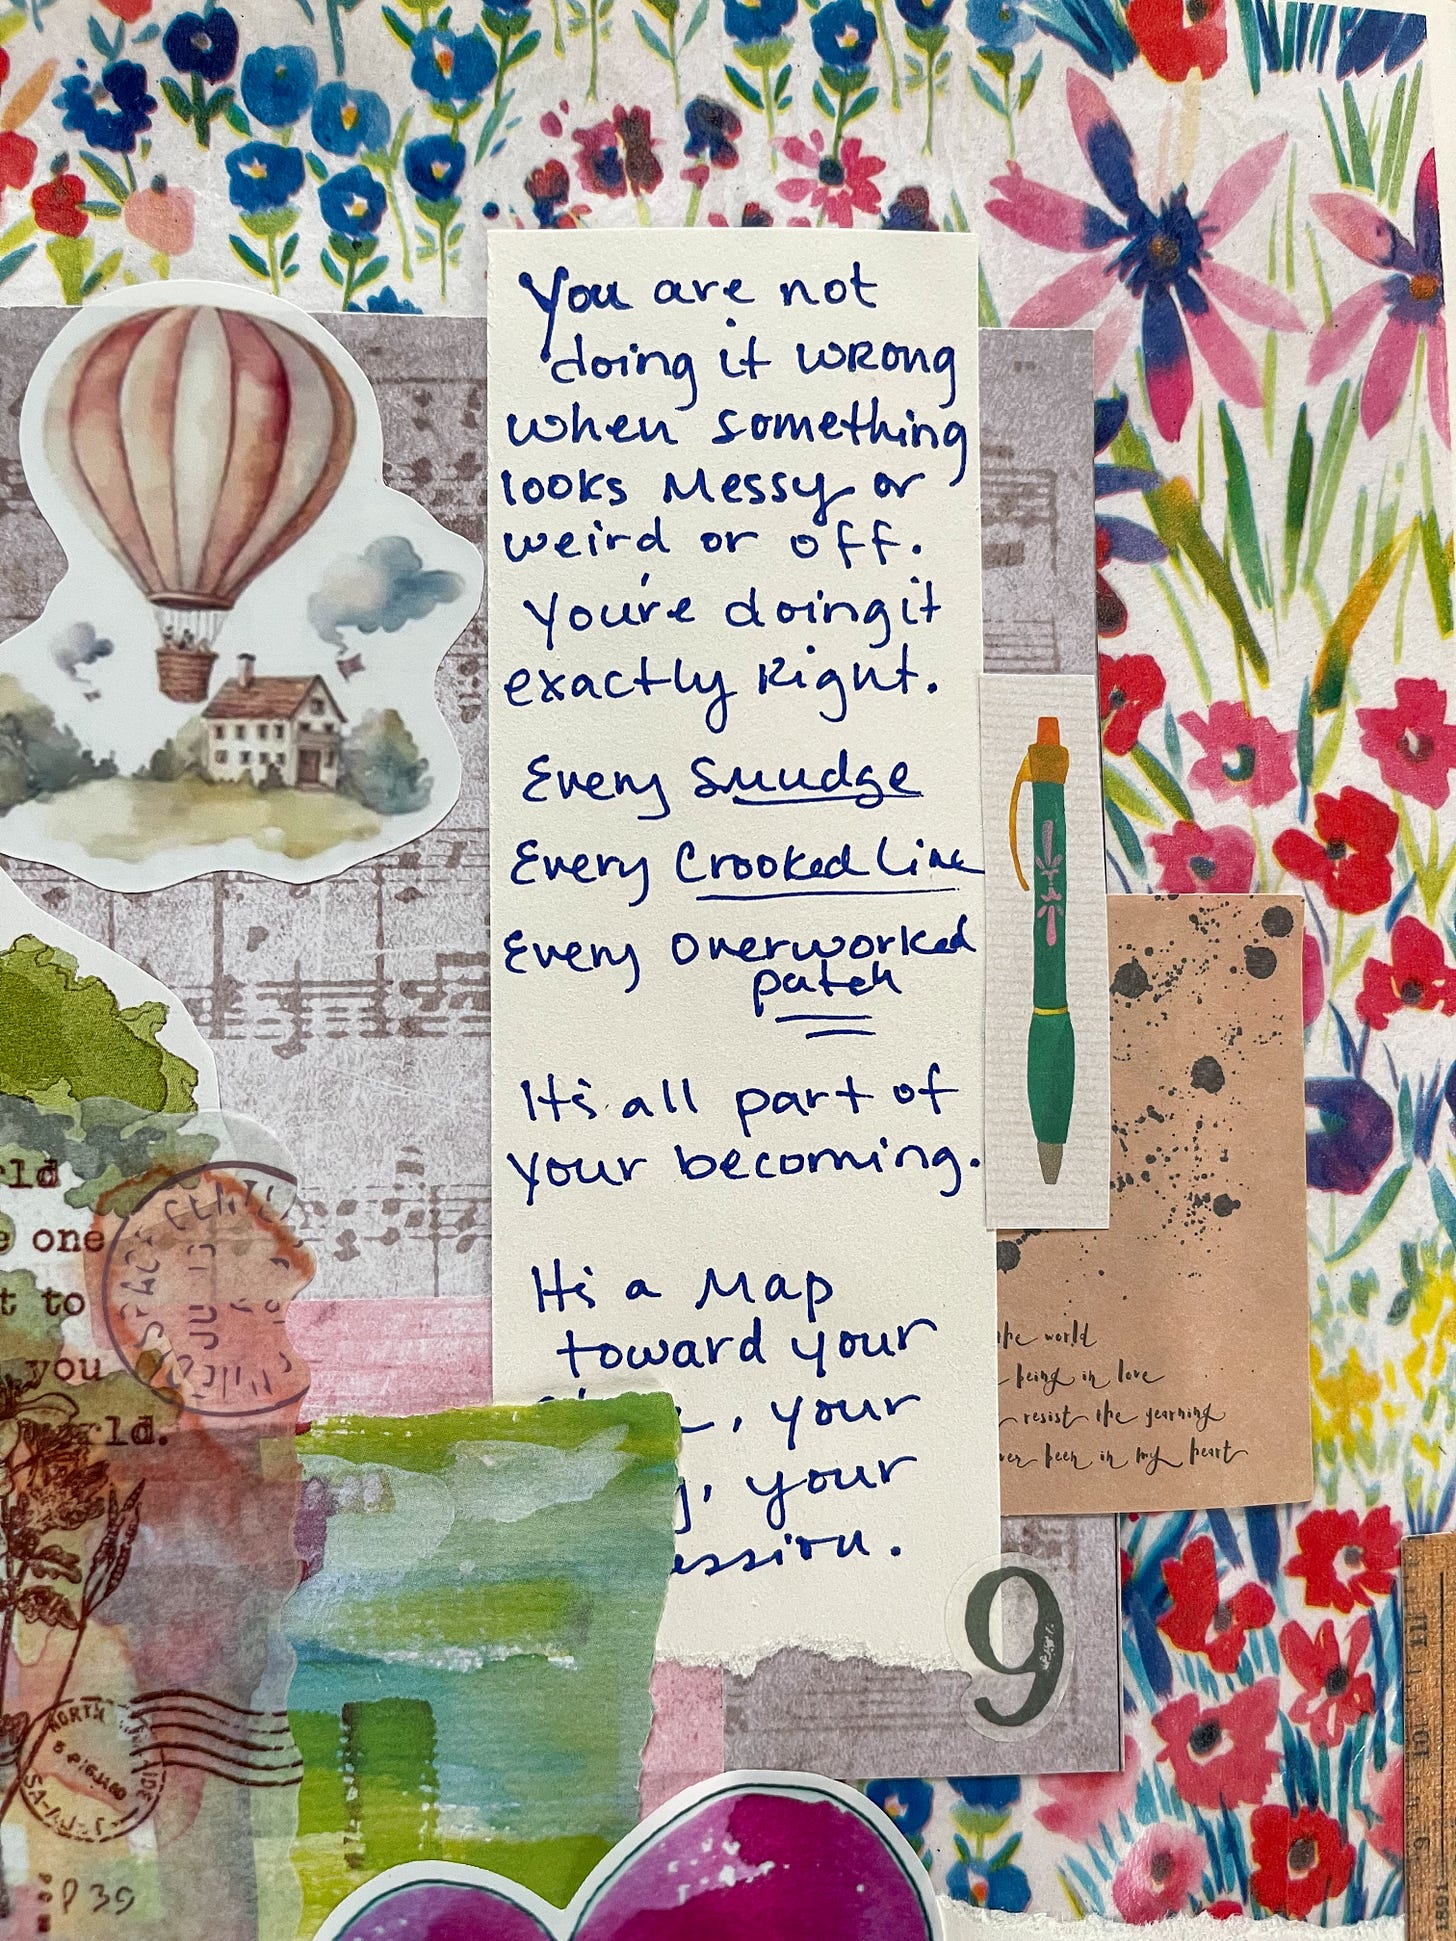 You are not
doing it wRong
when something
looks Messy or
weird or off.
You're doing it
exactly Right.
Every Smudge
Every Crooked Line
Every Overworked
patch
It's all part of
your becoming.
It's a Map
toward your
, your
, your
.
9
the world
being in love
resist the yearning
been in my heart
one
to
you
world.
SPACE CENTER
NORTH
P39
9
10
11